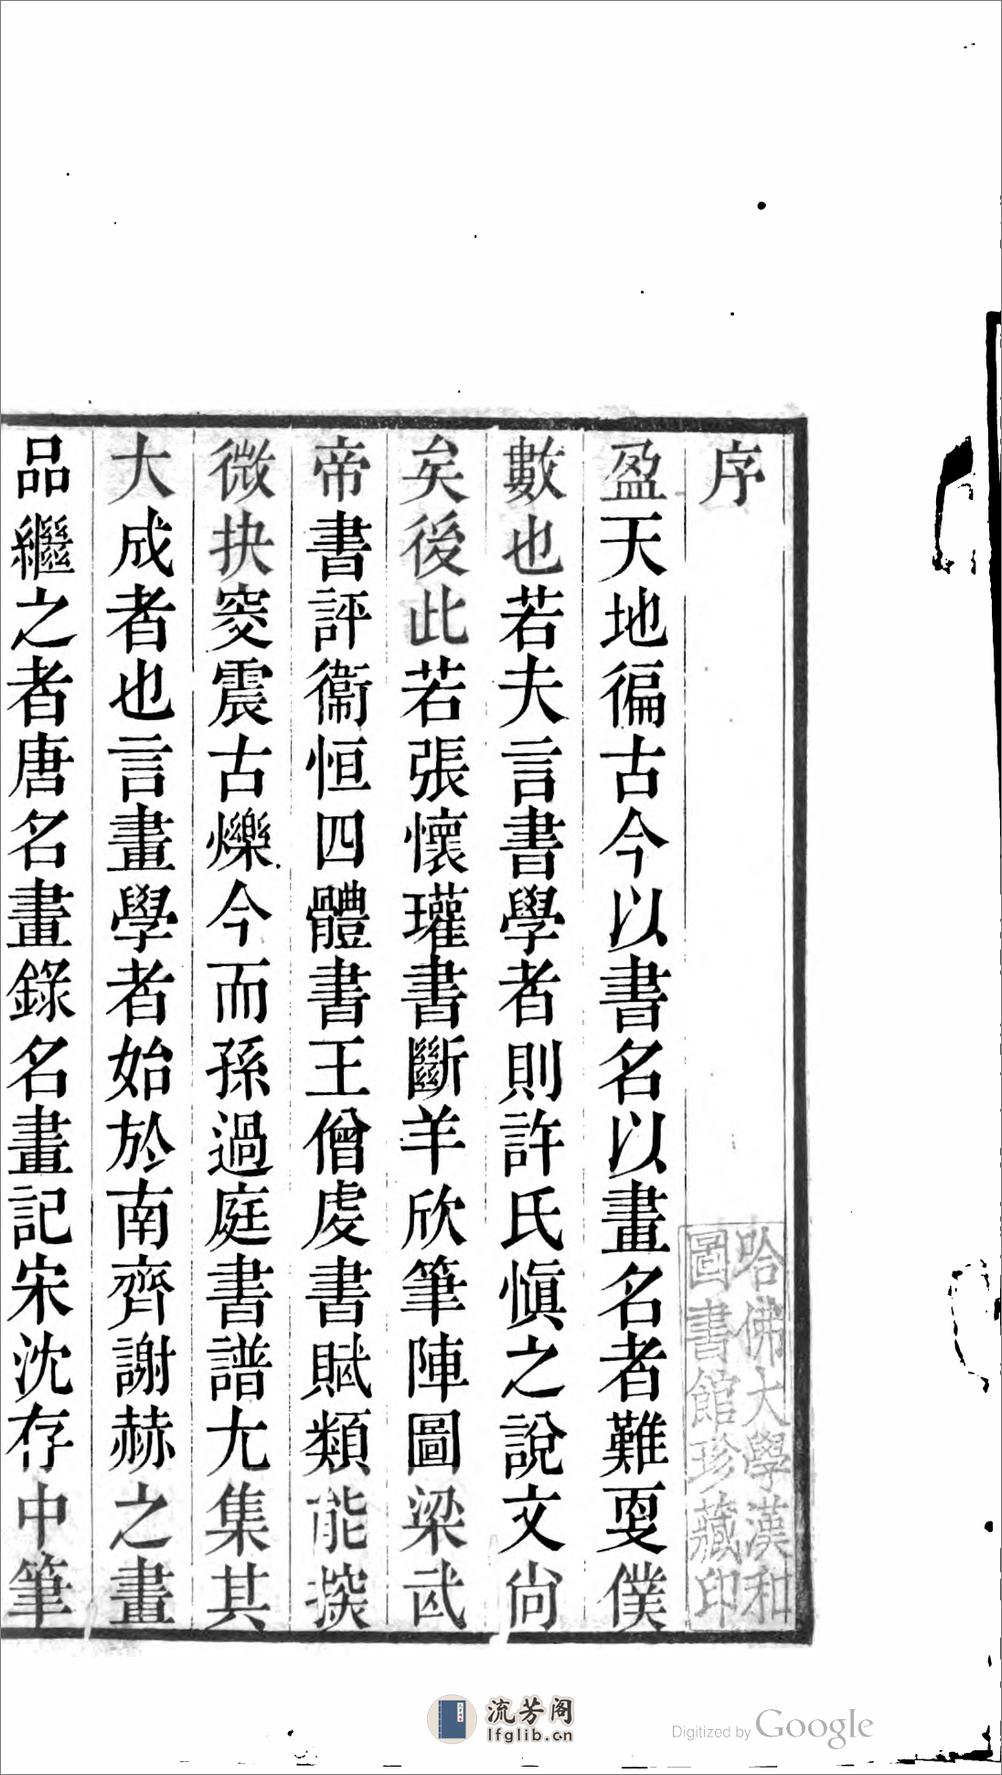 序
盈天地徧古今以書名以畫名者難更僕
數也若夫言書學者則許氏愼之說文尙
矣後此若張懷瓘書斷羊欣筆陣圖梁武
帝書評衞恒四體書王僧虔書賦類能探
微抉窔震古爍今而孫過庭書譜尤集其
大成者也言畫學者始於南齊謝赫之畫
品繼之者唐名畫錄名畫記宋沈存中筆
哈佛大學漢和
圖書館珍藏印
流芳阁
lfglib.cn
Digitized by Google